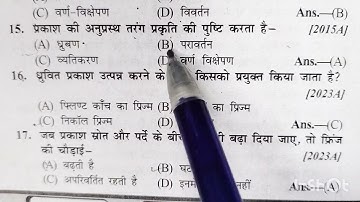 (C) वर्ण-विक्षेपण (D) विवर्तन Ans.—(B)
15. प्रकाश की अनुप्रस्थ तरंग प्रकृति की पुष्टि करता है– [2015A]
(A) ध्रुबण (B) परावर्तन
(C) व्यतिकरण (D) वर्ण विक्षेपण Ans.—(A)
16. ध्रुवित प्रकाश उत्पन्न करने के किसको प्रयुक्त किया जाता है?
[2023A]
(A) फ्लिण्ट काँच का प्रिज्म (B) का प्रिज्म
(C) निकॉल प्रिज्म (D) Ans.—(C)
17. जब प्रकाश स्रोत और पर्दे के बढ़ा दिया जाए, तो फ्रिंज
की चौड़ाई– [2023A]
(A) बढ़ती है (B)
(C) अपरिवर्तित रहती है (D) नहीं Ans.—(A)